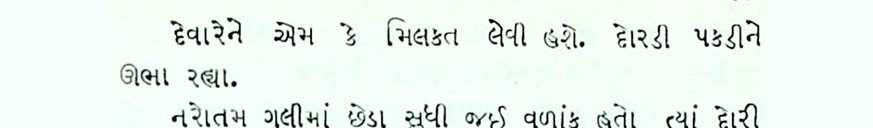 દેવારેને એમ કે મિલકત લેવી હશે. દોરડી પકડીને
ઊભા રહ્યા.
નરોતમ ગલીમાં છેડા સુધી જઈ વળાંક હતો ત્યાં દોરી